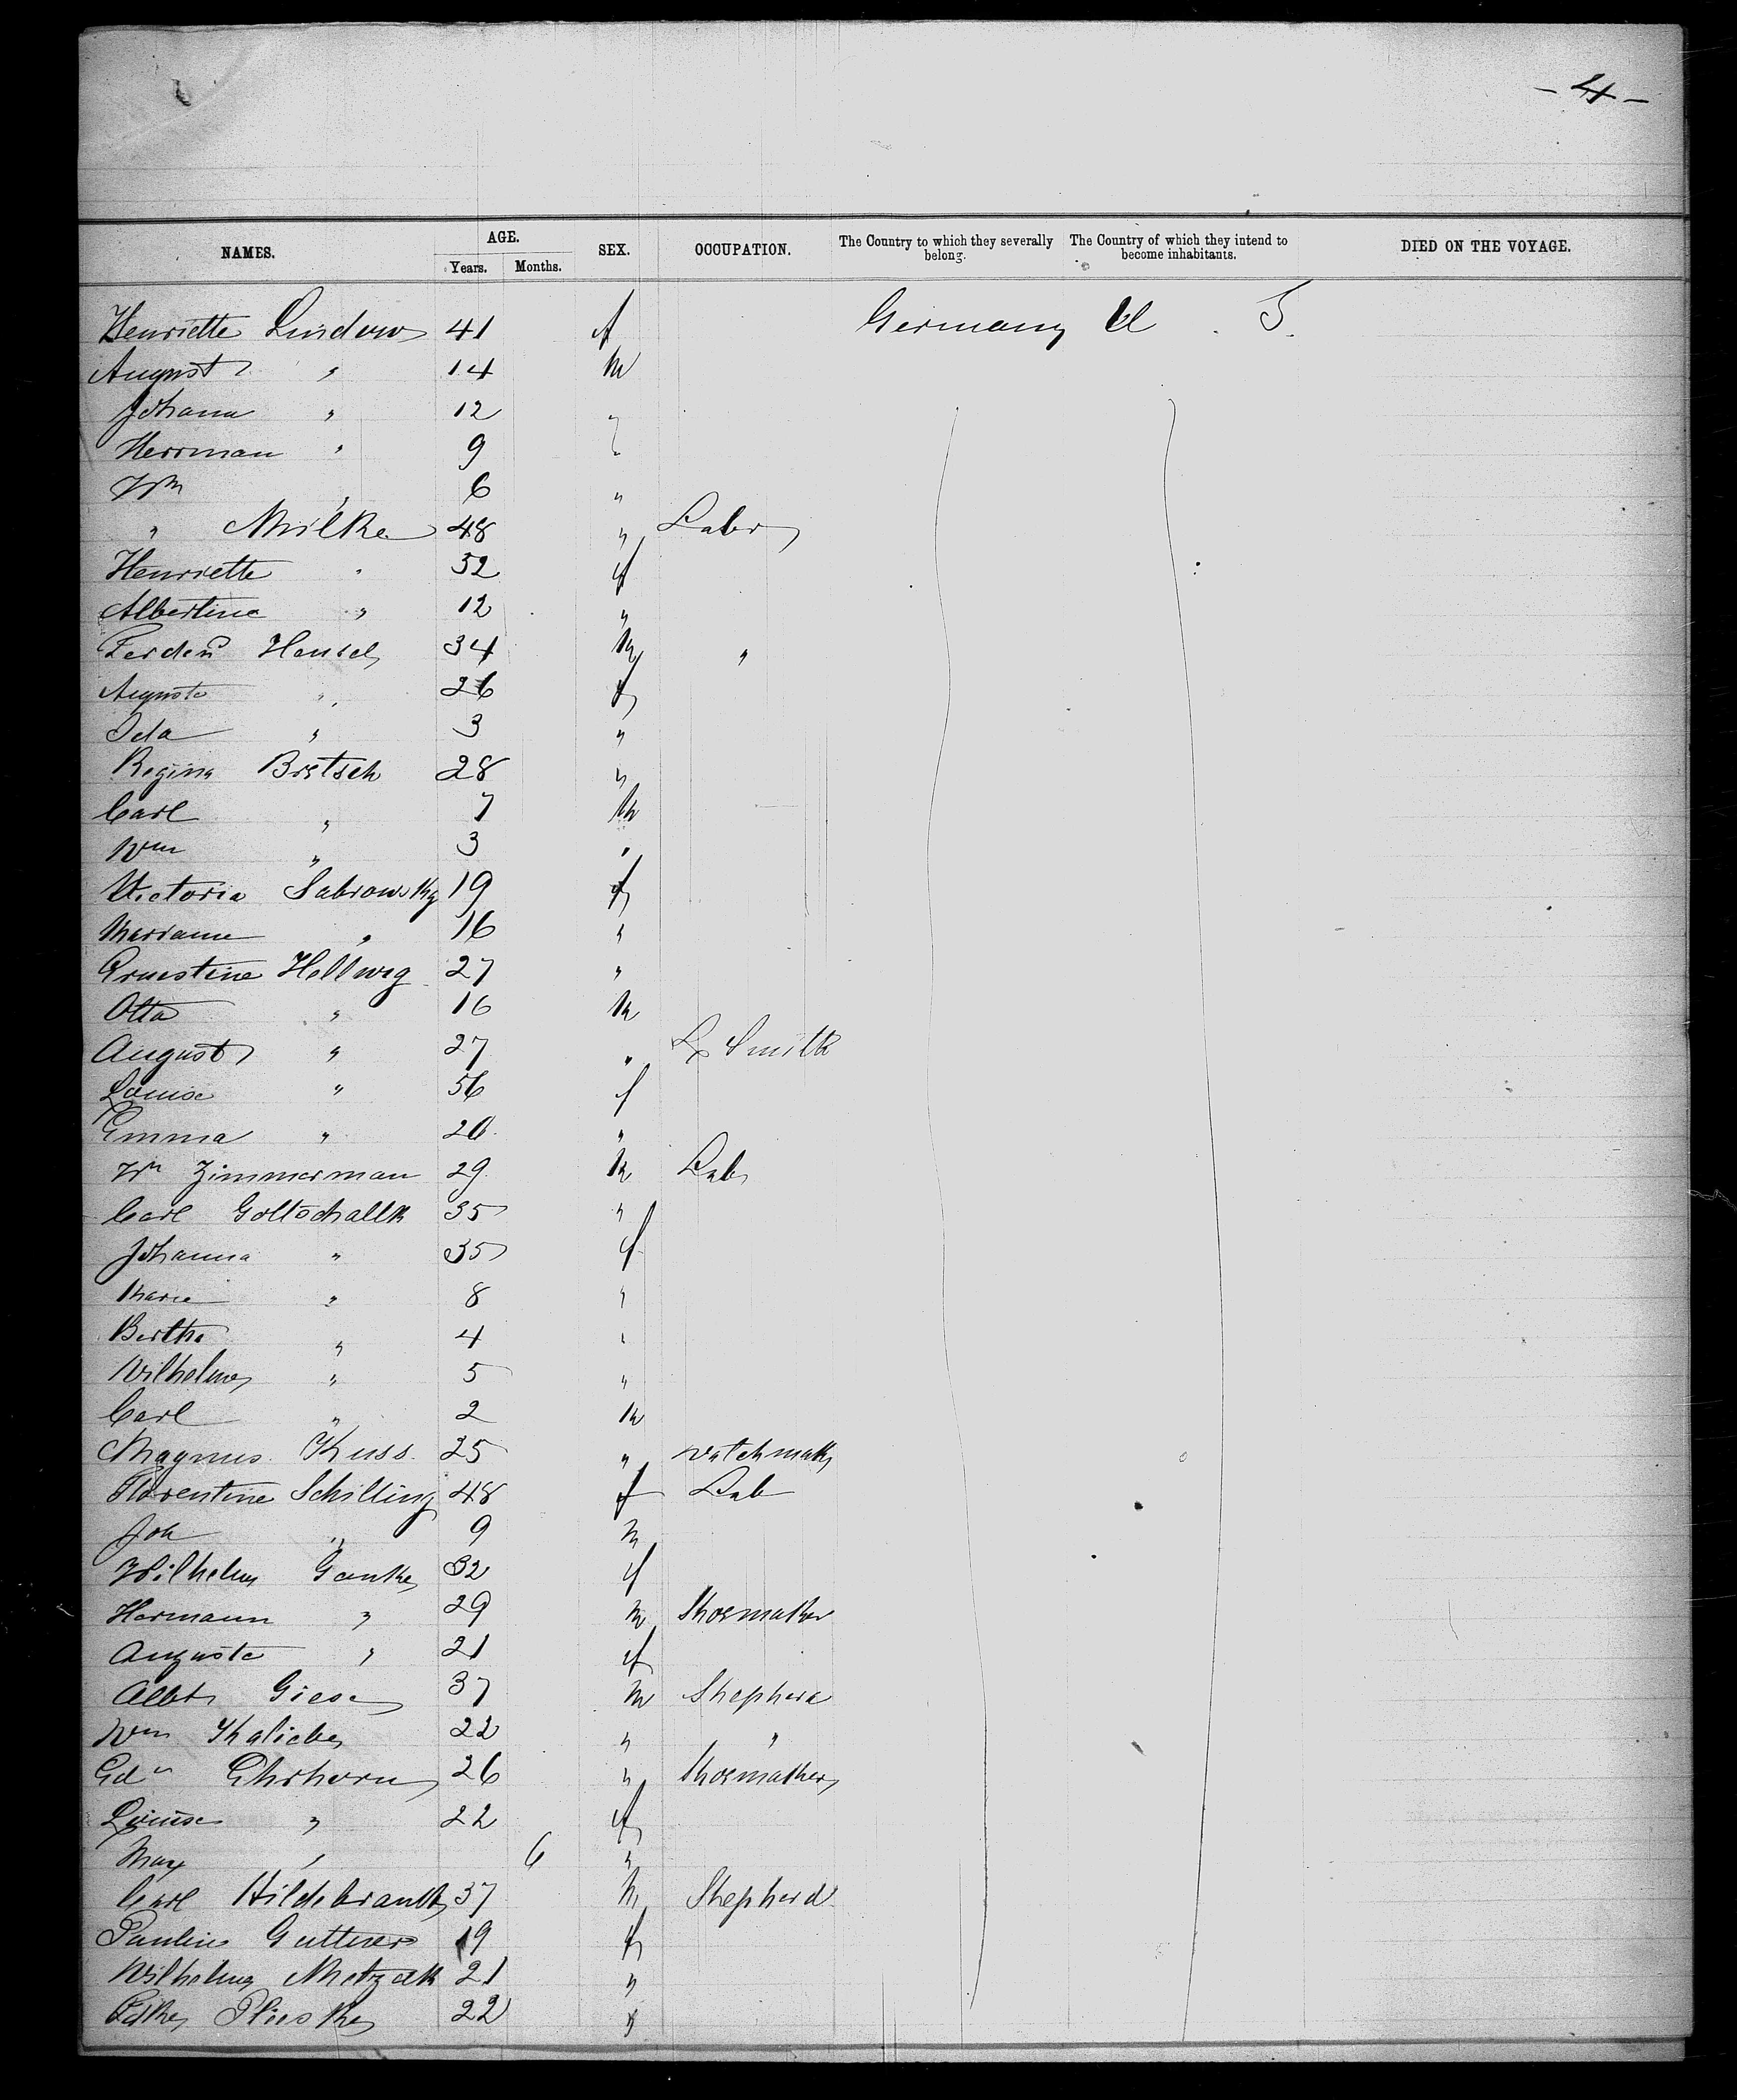 - 4 -
NAMES. AGE. Years. Months. SEX. OCCUPATION. The Country to which they severally belong. The Country of which they intend to become inhabitants. DIED ON THE VOYAGE.
Henriette Lindow 41 f Germany U. S.
August " 14 m
Johann " 12 "
Herrman " 9 "
Wm " 6 "
" Milke 48 " Labr
Henriette " 52 f
Albertine " 12 "
Ferdend Hensel 34 m "
Auguste " 26 f
Ida " 3 "
Regina Bretsch 28 "
Carl " 7 m
Wm " 3 "
Victoria Sabrowsky 19 f
Marianne " 16 "
Ernestine Hellwig 27 "
Otto " 16 m
August " 27 " Smith
Louise " 56 f
Emma " 20 "
Wm Zimmerman 29 m Lab
Carl Gottschalk 35 "
Johanna " 35 f
Marie " 8 "
Bertha " 4 "
Wilhelm " 5 "
Carl " 2 m
Magnus Kuss 25 " watchmak
Florentine Schilling 48 f Lab
Joh " 9 m
Wilhelm Ganke 32 f
Hermann " 29 m Shoemaker
Auguste " 21 f
Albt Giese 37 m Shepherd
Wm Kalicke 22 " "
Ed Ehrhorn 26 " Shoemaker
Louise " 22 f
Max " 6 "
Carl Hildebrandt 37 m Shepherd
Paulin Gutterer 19 f
Wilhelm 21 "
Plieske 22 "